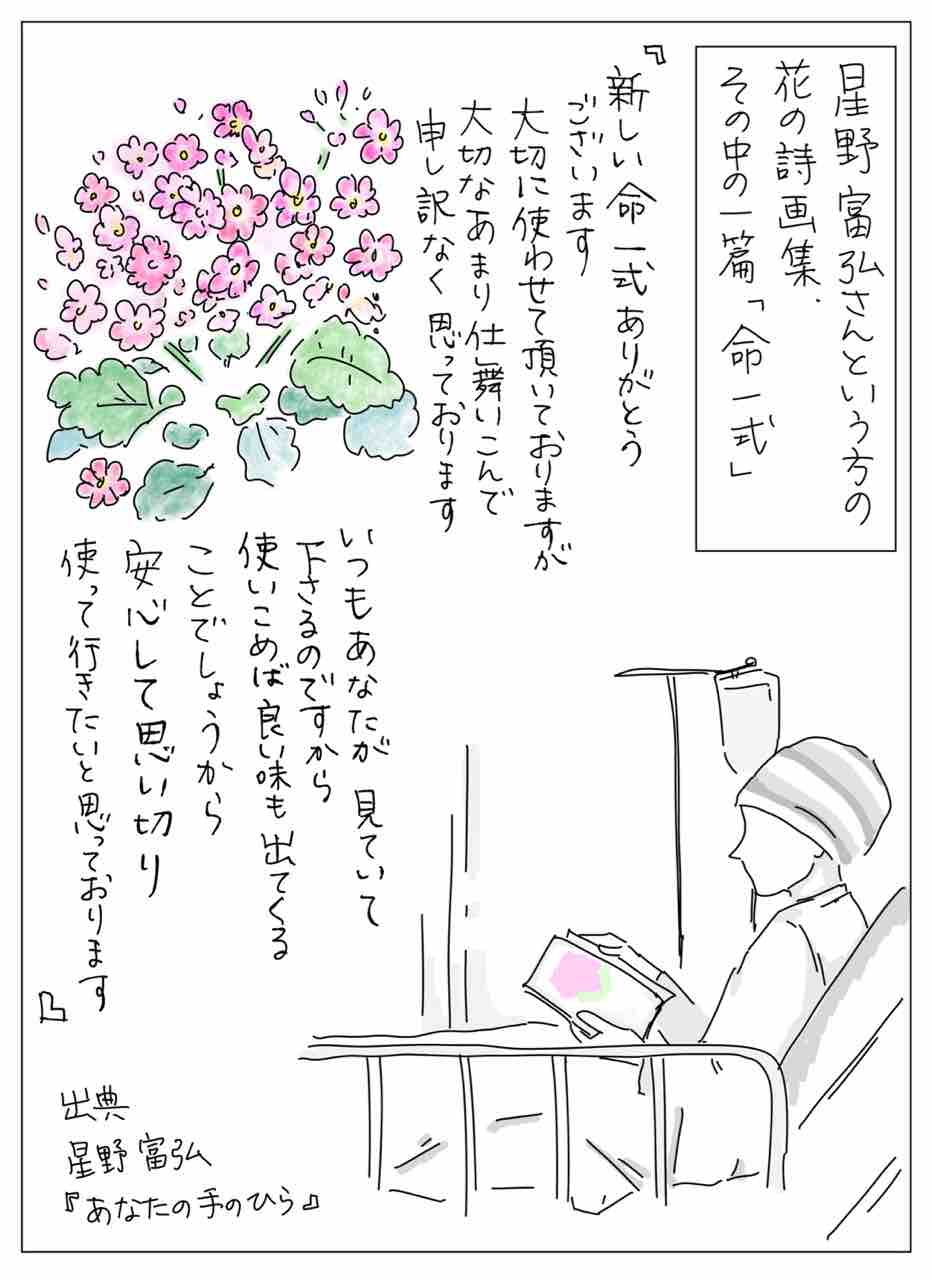 星野富弘さんという方の
花の詩画集.
その中の一篇「命一式」
『新しい命一式ありがとう
ございます
大切に使わせて頂いておりますが
大切なあまり仕舞いこんで
申し訳なく思っております
いつもあなたが見ていて
下さるのですから
使いこめば良い味も出てくる
ことでしょうから
安心して思い切り
使って行きたいと思っております』
出典
星野富弘
『あなたの手のひら』